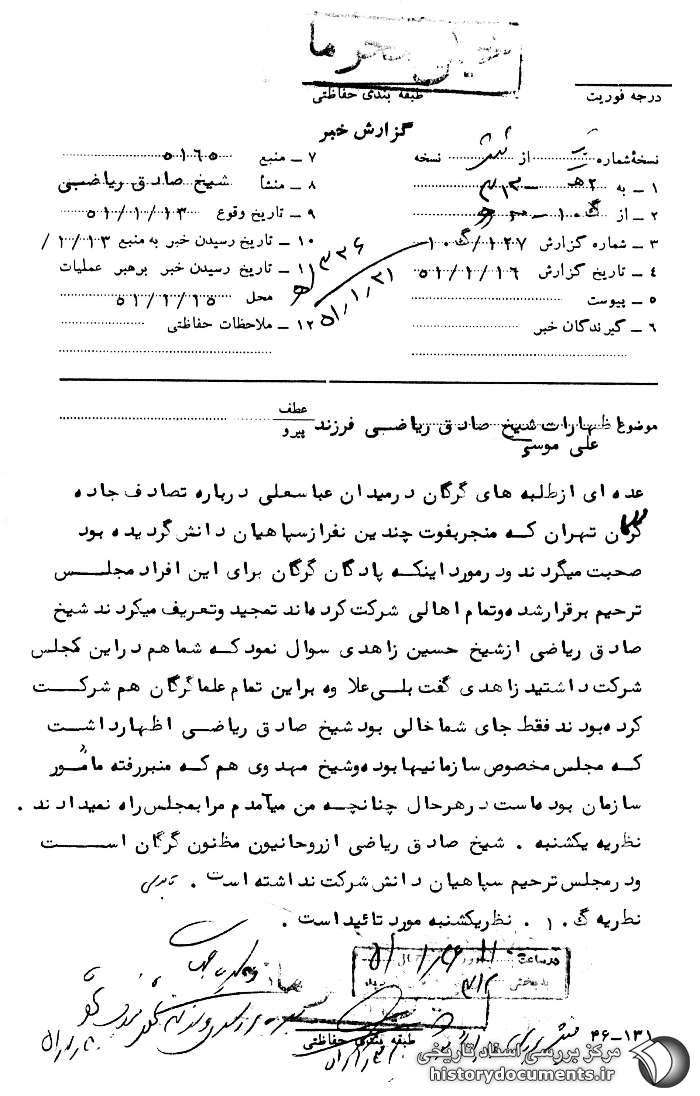 خیلی محرمانه
درجه فوریت
طبقه بندی حفاظتی
گزارش خبر
نسخه شماره از شش نسخه
۱ ـ به ۲هـ ـ ۳۱۲
۲ ـ از ک۱۰ ـ
۳ ـ شماره گزارش ۱۲۷/ک۱۰
۴ ـ تاریخ گزارش ۵۱/۱/۱۶
۵ ـ پیوست
۶ ـ گیرندگان خبر
۷ ـ منبع ۵۱۶۵
۸ ـ منشأ شیخ صادق ریاضی
۹ ـ تاریخ وقوع ۵۱/۱/۱۳
۱۰ ـ تاریخ رسیدن خبر به منبع ۱/۱۳/
۱۱ ـ تاریخ رسیدن خبر برهبر عملیات
محل ۵۱/۱/۱۵
۱۲ ـ ملاحظات حفاظتی
۵۱/۱/۲۱
موضوع اظهارات شیخ صادق ریاضی فرزند علی موسی
عطف
پیرو
عده ای ازطلبه های گرگان درمیدان عباسعلی درباره تصادف جاده
گرگان تهران که منجربفوت چندین نفرازسپاهیان دانش گردیده بود
صحبت میکردند ودرمورد اینکه پادگان گرگان برای این افراد مجلس
ترحیم برقرارشده وتمام اهالی شرکت کرده اند تمجید وتعریف میکردند شیخ
صادق ریاضی ازشیخ حسین زاهدی سوال نمود که شماهم دراین مجلس
شرکت داشتید زاهدی گفت بلی علاوه براین تمام علماگرگان هم شرکت
کرده بودند فقط جای شماخالی بود شیخ صادق ریاضی اظهارداشت
که مجلس مخصوص سازمانیها بوده وشیخ مهدوی هم که منبررفته مأمور
سازمان بوده است درهرحال چنانچه من میآمدم مرا بمجلس راه نمیدادند .
نظریه یکشنبه . شیخ صادق ریاضی ازروحانیون مظنون گرگان است
ودرمجلس ترحیم سپاهیان دانش شرکت نداشته است .
نظریه ک۱۰ . نظریکشنبه مورد تائید است .
درساعت
بدبخش ۳۱۲
طبقه بندی حفاظتی
۱۳۱-۴۶
مرکز بررسی اسناد تاریخی
historydocuments.ir